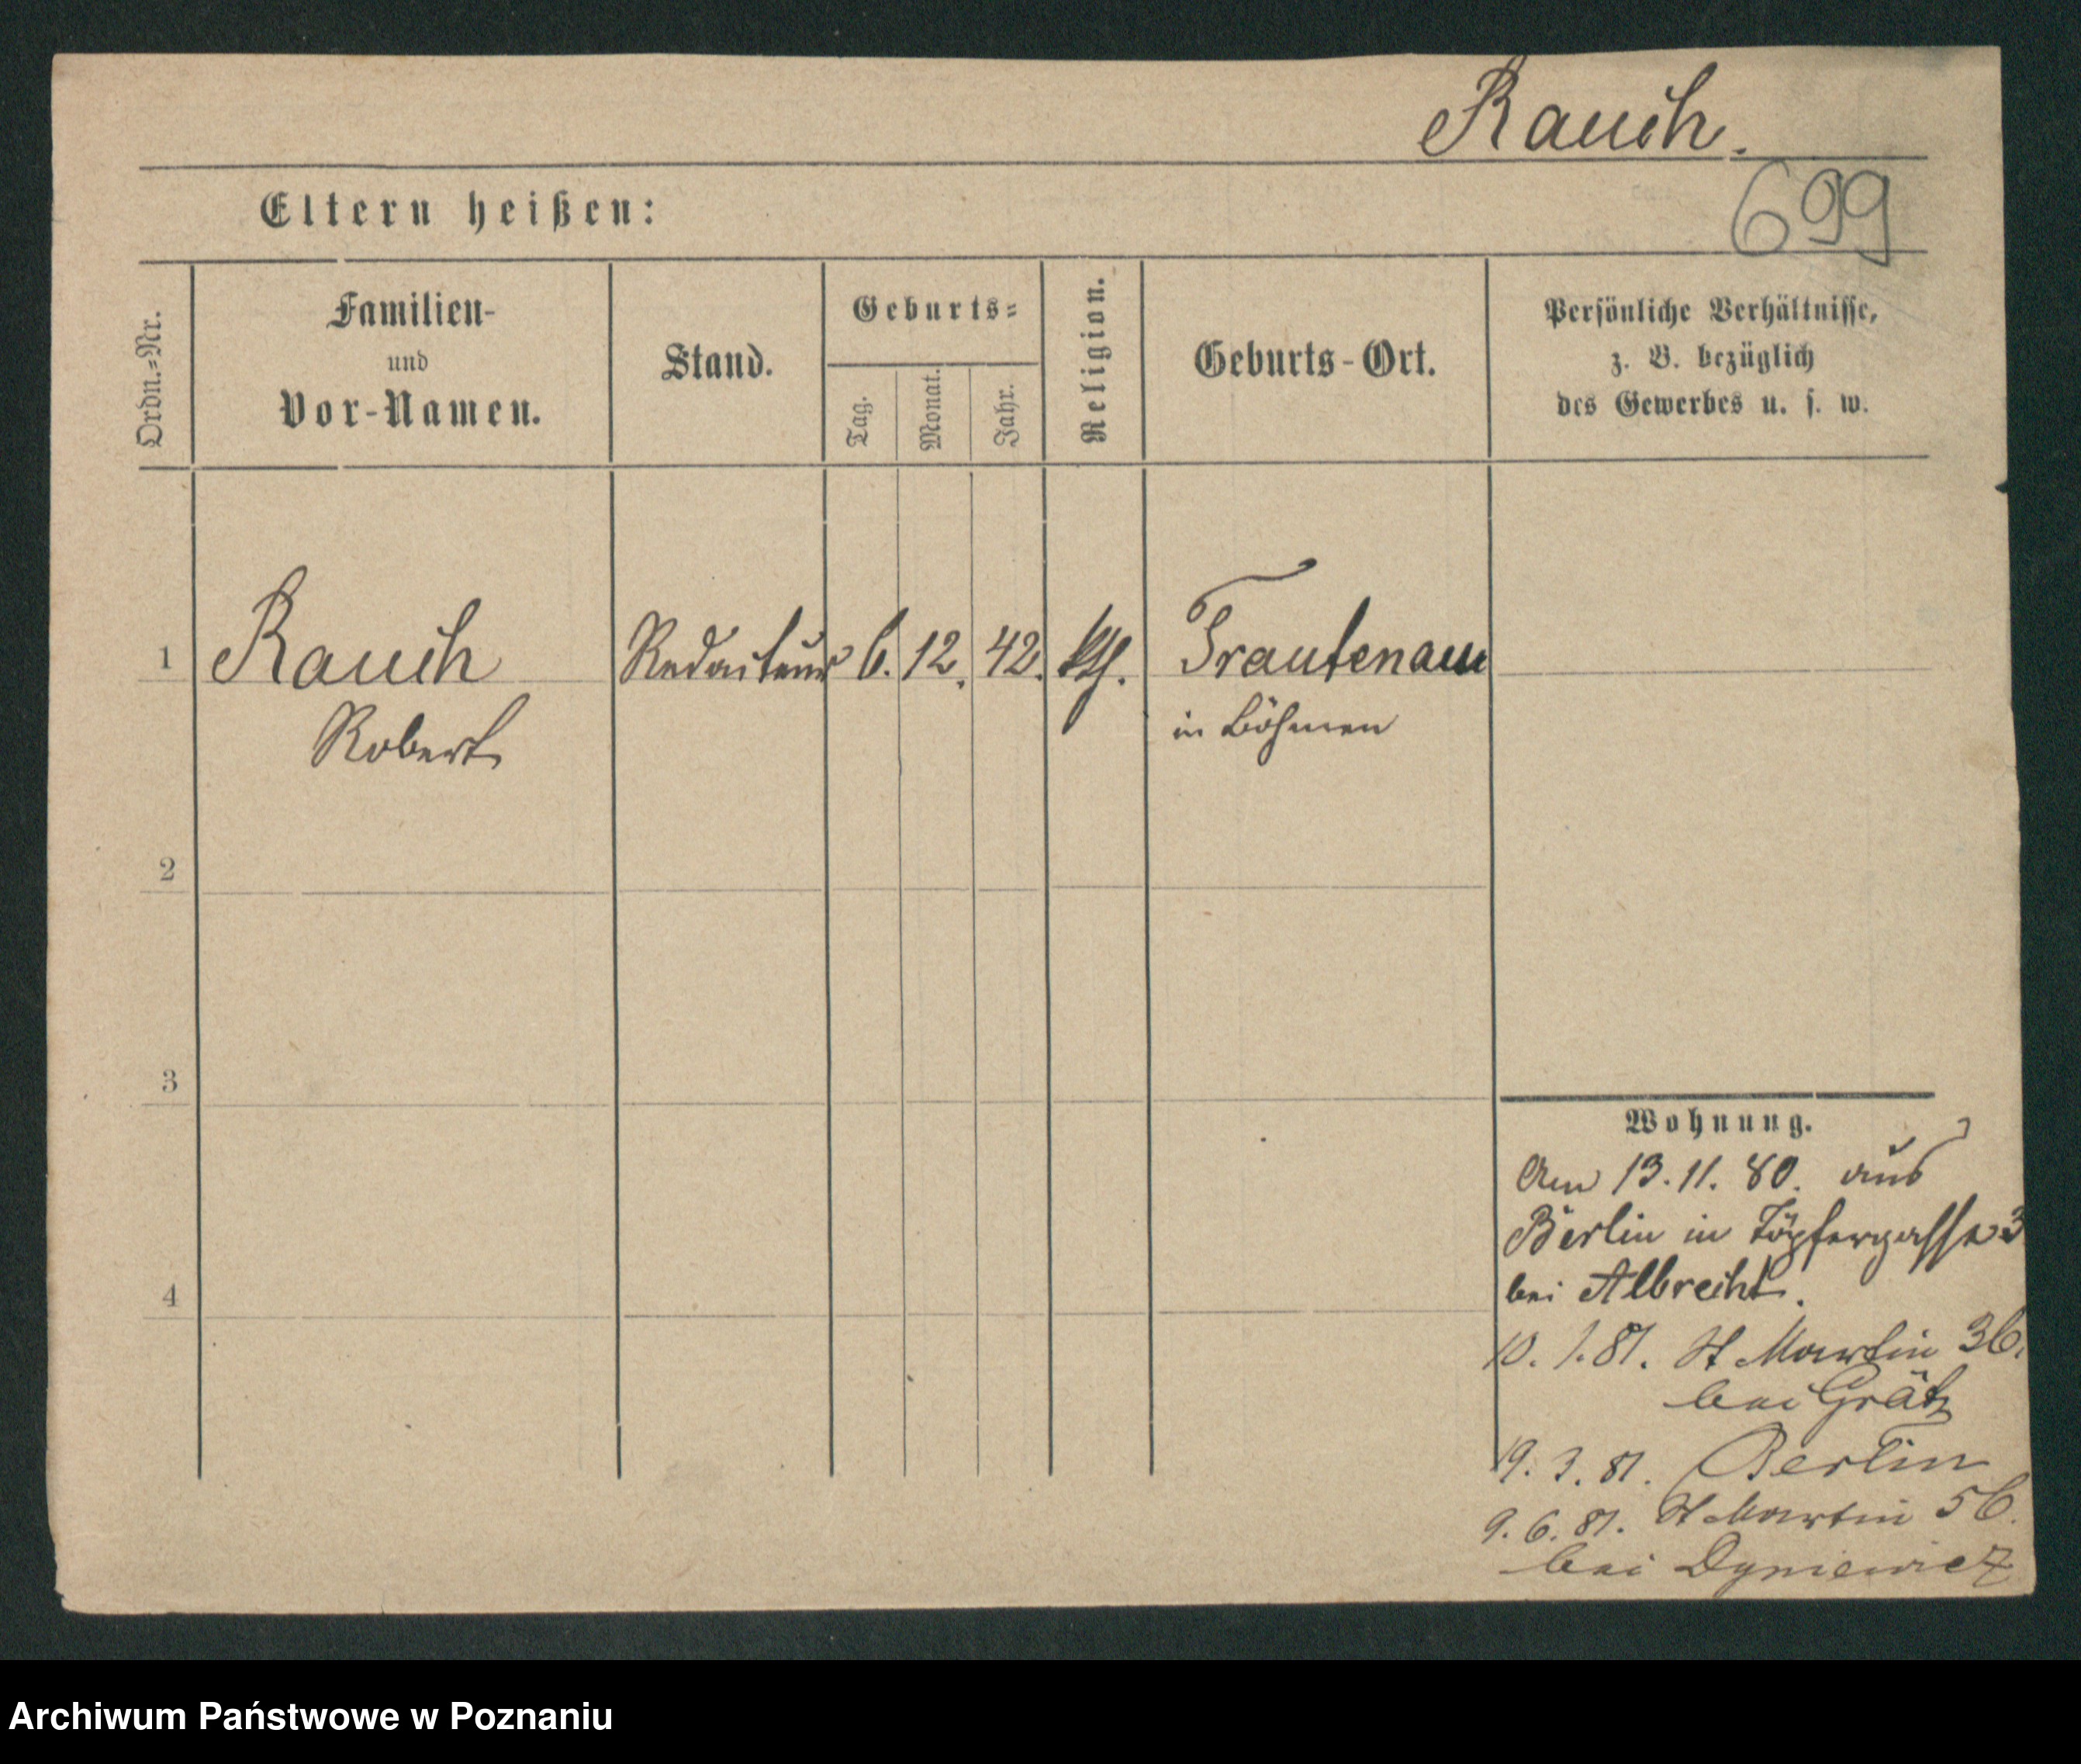 Rauch.
699
Eltern heißen:
Ordn.=Nr.
Familien-
und
Vor-Namen.
Stand.
Geburts=
Tag.
Monat.
Jahr.
Religion.
Geburts-Ort.
Persönliche Verhältnisse,
z. B. bezüglich
des Gewerbes u. s. w.
1 Rauch Redacteur 6. 12. 42. kth. Trautenau
Robert in Böhmen
2
3
4
Wohnung.
Am 13.11.80. aus
Berlin in Töpfergasse 3
bei Albrecht.
10. 1. 81. St Martin 36.
bei Grätz
19. 3. 81. Berlin
9. 6. 81. St Martin 56.
bei Dyniewicz
Archiwum Państwowe w Poznaniu